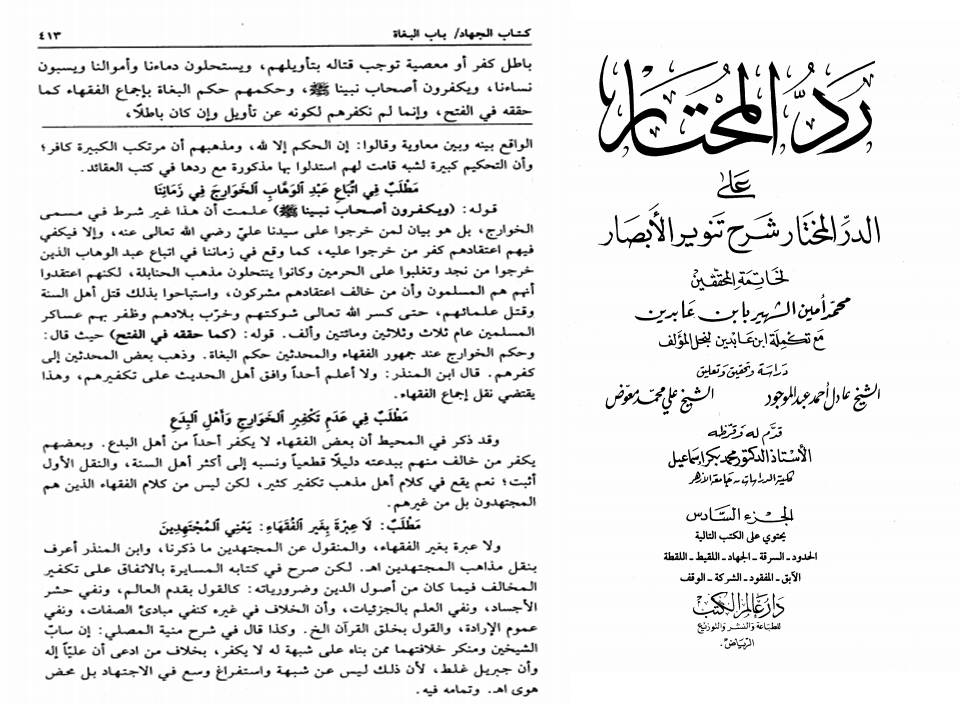 رد المحتار
على
الدر المختار شرح تنوير الأبصار
لخاتمة المحققين
محمد أمين الشهير بابن عابدين
مع تكملة ابن عابدين لنجل المؤلف
دراسة وتحقيق وتعليق
الشيخ عادل أحمد عبد الموجود الشيخ علي محمد معوض
قدم له وقرظه
الأستاذ الدكتور محمد بكر إسماعيل
كلية الدراسات - جامعة الأزهر
الجزء السادس
يحتوي على الكتب التالية
الحدود ـ السرقة ـ الجهاد ـ اللقيط ـ اللقطة
الآبق ـ المفقود ـ الشركة ـ الوقف
دار عالم الكتب
للطباعة والنشر والتوزيع
الرياض
كتاب الجهاد/ باب البغاة ٤١٣
باطل كفر أو معصية توجب قتاله بتأويلهم، ويستحلون دماءنا وأموالنا ويسبون
نساءنا، ويكفرون أصحاب نبينا ﷺ، وحكمهم حكم البغاة بإجماع الفقهاء كما
حققه في الفتح، وإنما لم نكفرهم لكونه عن تأويل وإن كان باطلًا،
الواقع بينه وبين معاوية وقالوا: إن الحكم إلا لله، ومذهبهم أن مرتكب الكبيرة كافر؛
وأن التحكيم كبيرة لشبه قامت لهم استدلوا بها مذكورة مع ردها في كتب العقائد.
مَطْلَبٌ فِي اتِّبَاعِ عَبْدِ الوَهَّابِ الخَوَارِجَ فِي زَمَانِنَا
قوله: (ويكفرون أصحاب نبينا ﷺ) علمت أن هذا غير شرط في مسمى
الخوارج، بل هو بيان لمن خرجوا على سيدنا عليّ رضي الله تعالى عنه، وإلا فيكفي
فيهم اعتقادهم كفر من خرجوا عليه، كما وقع في زماننا في اتباع عبد الوهاب الذين
خرجوا من نجد وتغلبوا على الحرمين وكانوا ينتحلون مذهب الحنابلة، لكنهم اعتقدوا
أنهم هم المسلمون وأن من خالف اعتقادهم مشركون، واستباحوا بذلك قتل أهل السنة
وقتل علمائهم، حتى كسر الله تعالى شوكتهم وخرّب بلادهم وظفر بهم عساكر
المسلمين عام ثلاث وثلاثين ومائتين وألف. قوله: (كما حققه في الفتح) حيث قال:
وحكم الخوارج عند جمهور الفقهاء والمحدثين حكم البغاة. وذهب بعض المحدثين إلى
كفرهم. قال ابن المنذر: ولا أعلم أحداً وافق أهل الحديث على تكفيرهم، وهذا
يقتضي نقل إجماع الفقهاء.
مَطْلَبٌ فِي عَدَمِ تَكْفِيرِ الخَوَارِجِ وَأَهْلِ البِدَعِ
وقد ذكر في المحيط أن بعض الفقهاء لا يكفر أحداً من أهل البدع. وبعضهم
يكفر من خالف منهم ببدعته دليلًا قطعياً ونسبه إلى أكثر أهل السنة، والنقل الأول
أثبت؛ نعم يقع في كلام أهل مذهب تكفير كثير، لكن ليس من كلام الفقهاء الذين هم
المجتهدون بل من غيرهم.
مَطْلَبٌ: لاَ عِبْرَةَ بِغَيرِ الفُقَهَاءِ: يَعْنِي المُجْتَهِدِينَ
ولا عبرة بغير الفقهاء، والمنقول عن المجتهدين ما ذكرنا، وابن المنذر أعرف
بنقل مذاهب المجتهدين اهـ. لكن صرح في كتابه المسايرة بالاتفاق على تكفير
المخالف فيما كان من أصول الدين وضرورياته: كالقول بقدم العالم، ونفي حشر
الأجساد، ونفي العلم بالجزئيات، وأن الخلاف في غيره كنفي مبادئ الصفات، ونفي
عموم الإرادة، والقول بخلق القرآن الخ. وكذا قال في شرح منية المصلي: إن سابّ
الشيخين ومنكر خلافتهما ممن بناه على شبهة له لا يكفر، بخلاف من ادعى أن عليّاً إله
وأن جبريل غلط، لأن ذلك ليس عن شبهة واستفراغ وسع في الاجتهاد بل محض
هوى اهـ. وتمامه فيه.